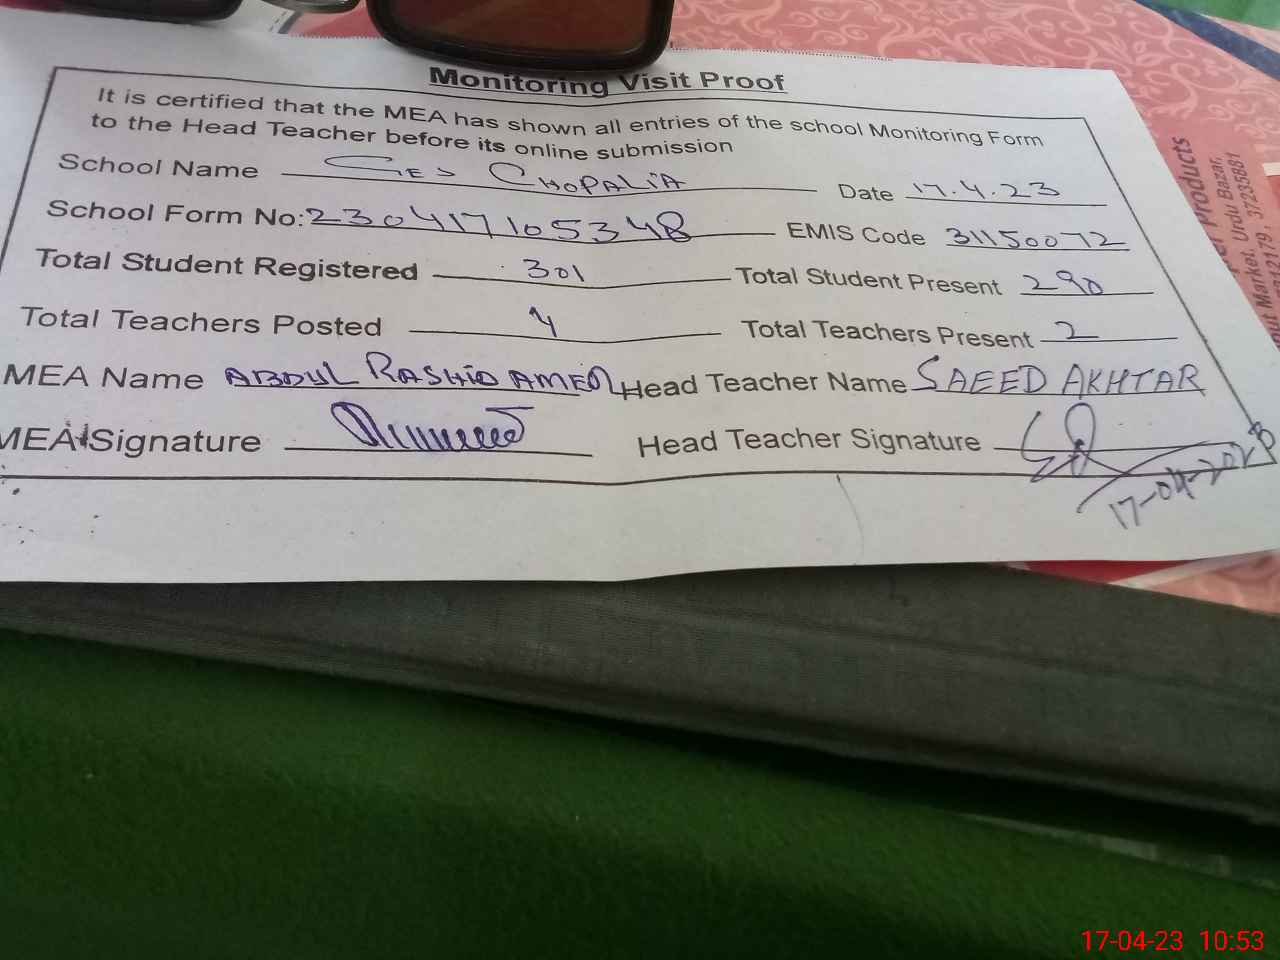 Monitoring Visit Proof
It is certified that the MEA has shown all entries of the school Monitoring Form
to the Head Teacher before its online submission
School Name GES CHOPALIA Date 17.4.23
School Form No: 230417105348 EMIS Code 31150072
Total Student Registered 301 Total Student Present 290
Total Teachers Posted 4 Total Teachers Present 2
MEA Name ABDUL RASHID Head Teacher Name SAEED AKHTAR
MEA Signature Head Teacher Signature
17-04-2023
Products
Market, Urdu Bazar,
37235881
17-04-23 10:53